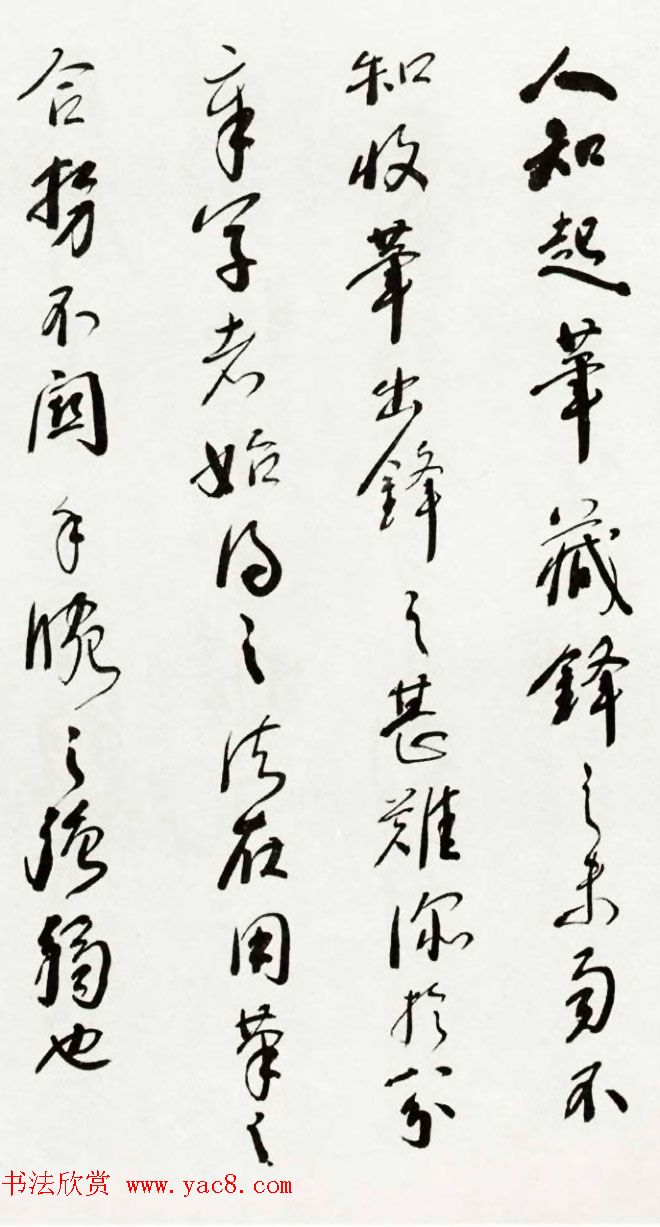 人知起筆藏鋒之未易不
知收筆出鋒之甚難深於八分
章草者始得之法在用筆之
合勢不關手腕之強弱也
书法欣赏 www.yac8.com